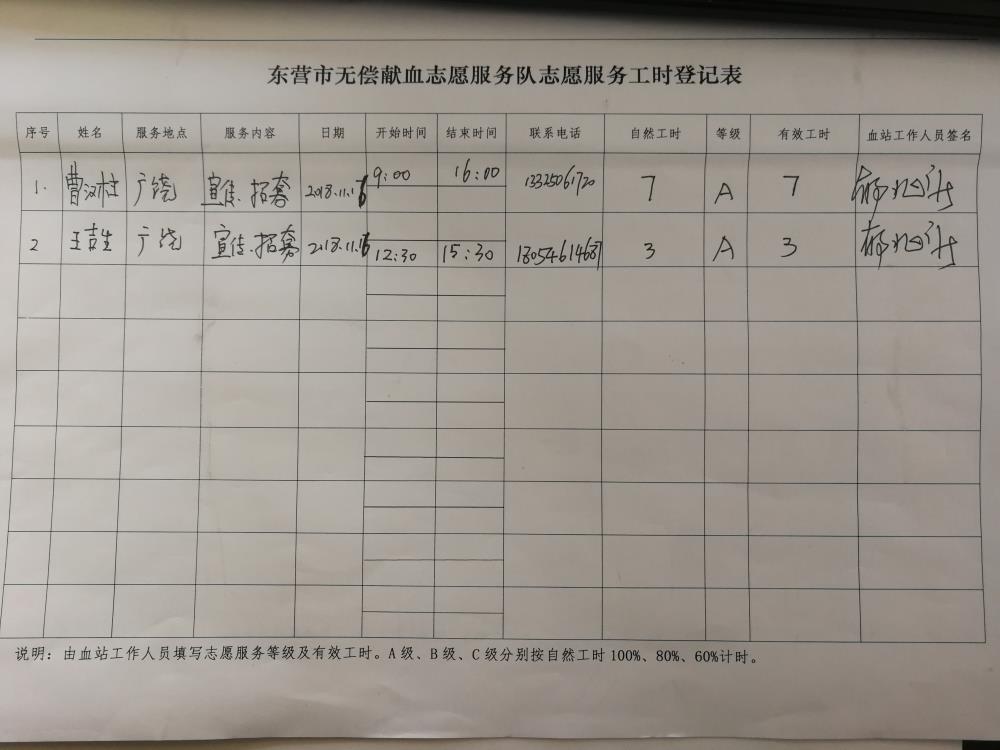 东营市无偿献血志愿服务队志愿服务工时登记表
序号 姓名 服务地点 服务内容 日期 开始时间 结束时间 联系电话 自然工时 等级 有效工时 血站工作人员签名
1. 曹汉柱 广饶 宣传、招募 2018.11.16 9:00 16:00 13325061720 7 A 7
2 王吉生 广饶 宣传、招募 2018.11.16 12:30 15:30 18054614687 3 A 3
说明：由血站工作人员填写志愿服务等级及有效工时。A级、B级、C级分别按自然工时100%、80%、60%计时。